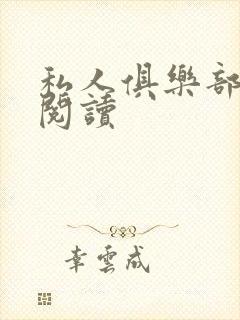 私人俱樂部
閱讀
幸雲成